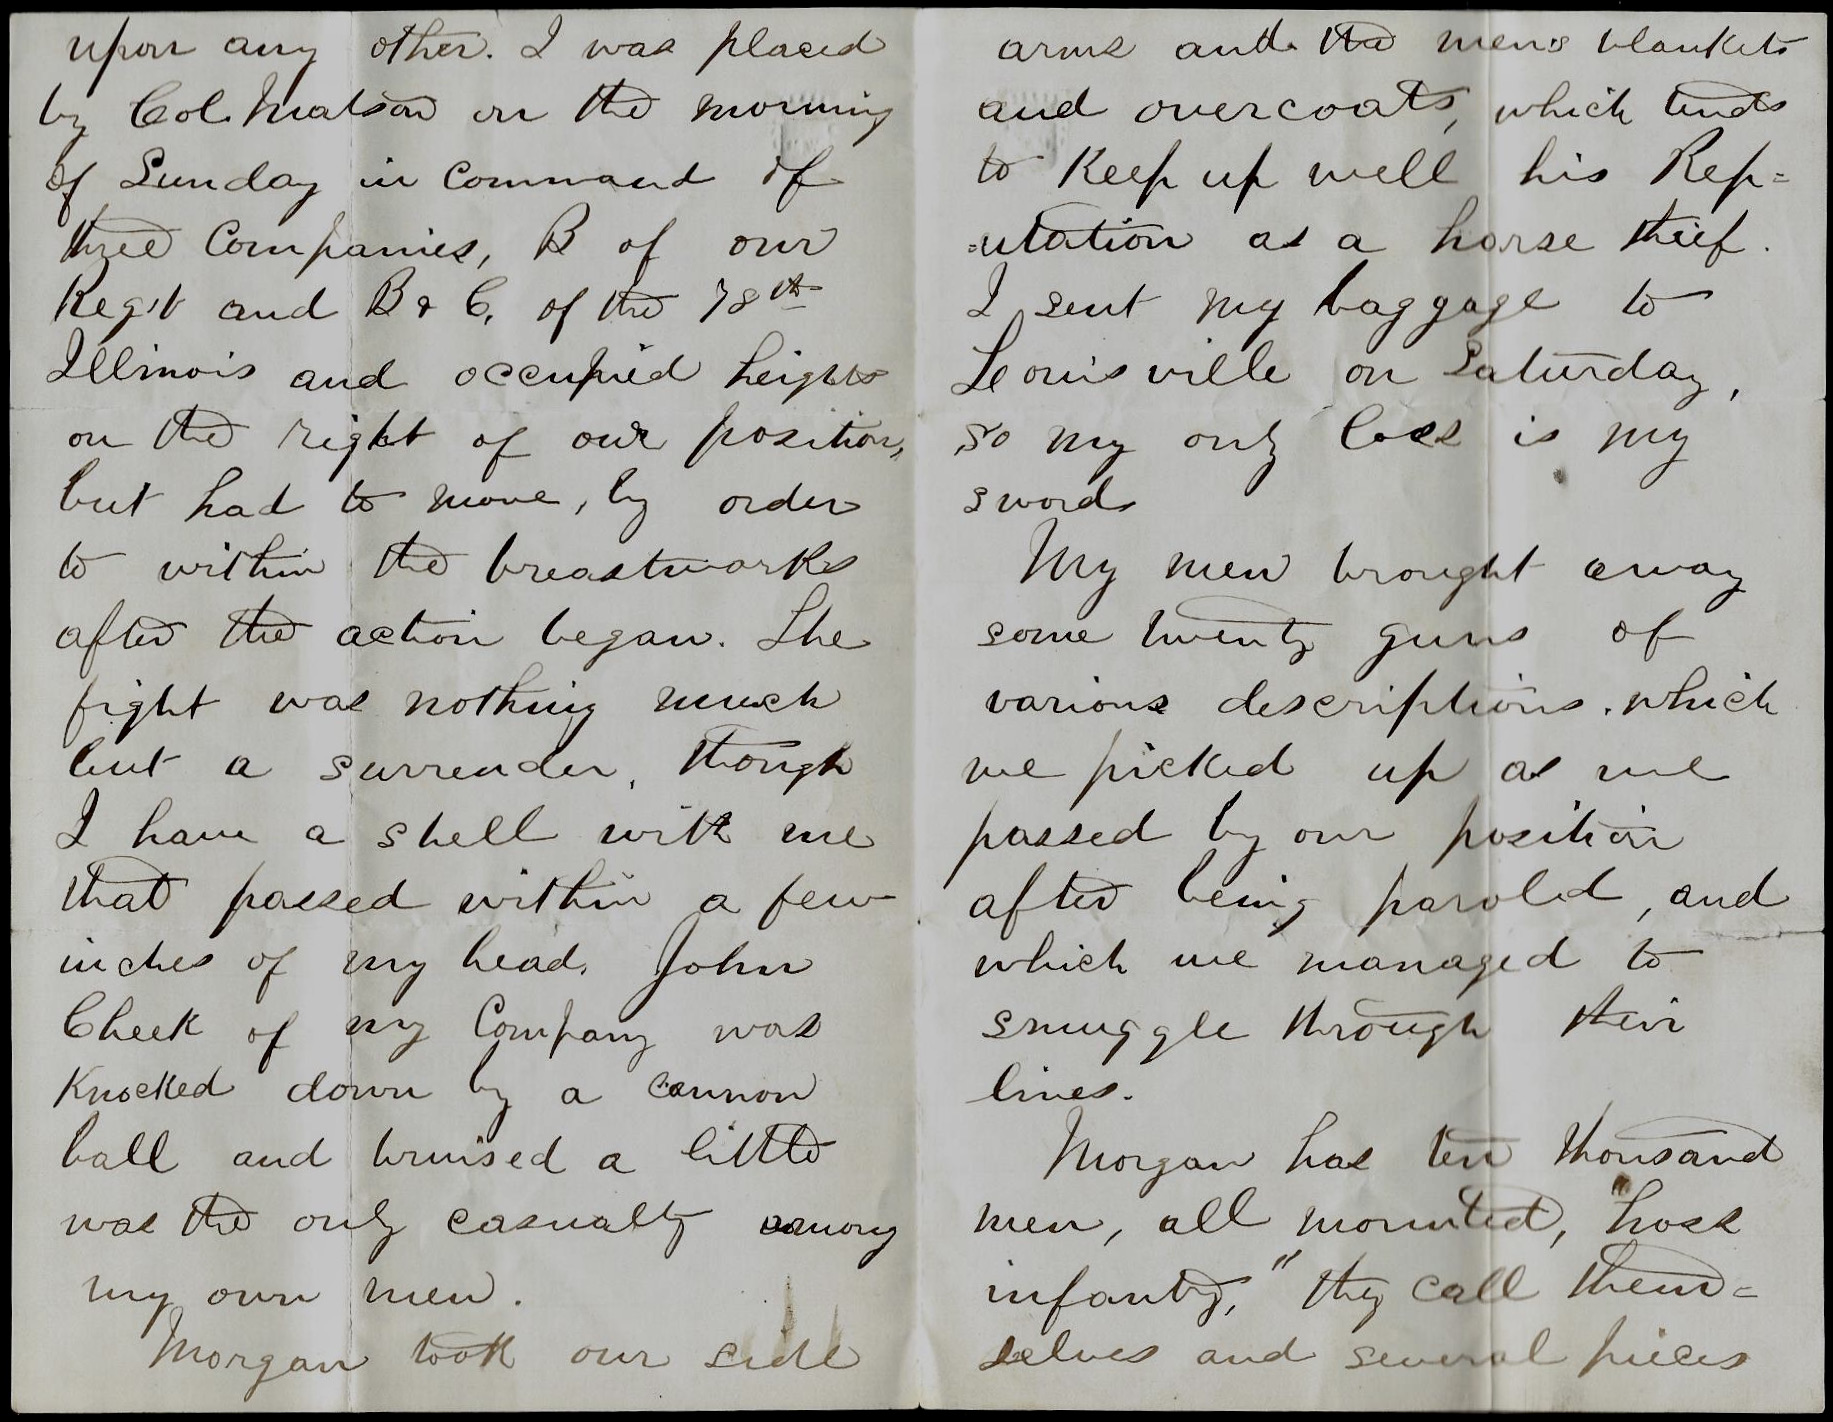 upon any other. I was placed
by Col. Matson on the morning
of Sunday in command of
three Companies, B of our
Reg't and B & C, of the 78th
Illinois and occupied heights
on the right of our position,
but had to move, by order
to within the breastworks
after the action began. The
fight was nothing much
but a surrender, though
I have a shell with me
that passed within a few
inches of my head. John
Cheek of my Company was
knocked down by a cannon
ball and bruised a little
was the only casualty among
my own men.
Morgan took our side
arms and the mens blankets
and overcoats, which tends
to Keep up well his Rep=
=utation as a horse thief.
I sent my baggage to
Louisville on Saturday,
so my only loss is my
sword
My men brought away
some twenty guns of
various descriptions. which
we picked up as we
passed by our position
after being parold, and
which we managed to
smuggle through their
lines.
Morgan has ten thousand
men, all mounted, "hoss
infantry," they call them=
selves and several pieces